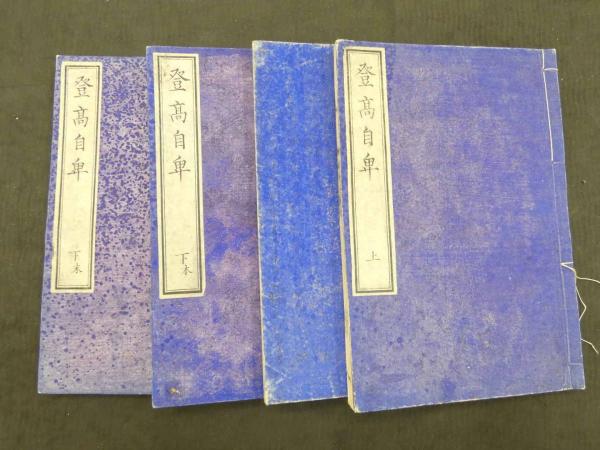 登髙自卑
上
登髙自卑
下本
登髙自卑
下末